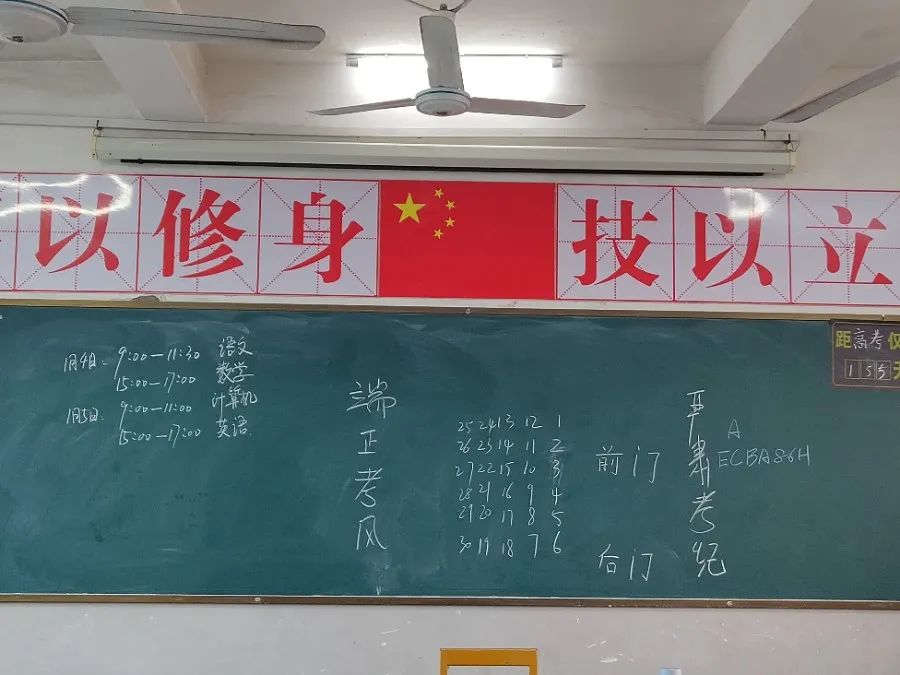 以修身 技以立
距高考仅
155天
1月4日: 9:00—11:30 语文
15:00—17:00 数学
1月5日: 9:00—11:00 计算机
15:00—17:00 英语
端正考风
25 24 13 12 1
26 23 14 11 2
27 22 15 10 3
28 21 16 9 4
29 20 17 8 5
30 19 18 7 6
前门
后门
严肃考纪
A
ECBA86H